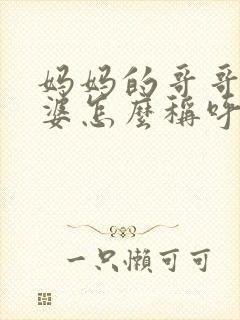 妈妈的哥哥
婆怎麼稱呼
一只懒可可